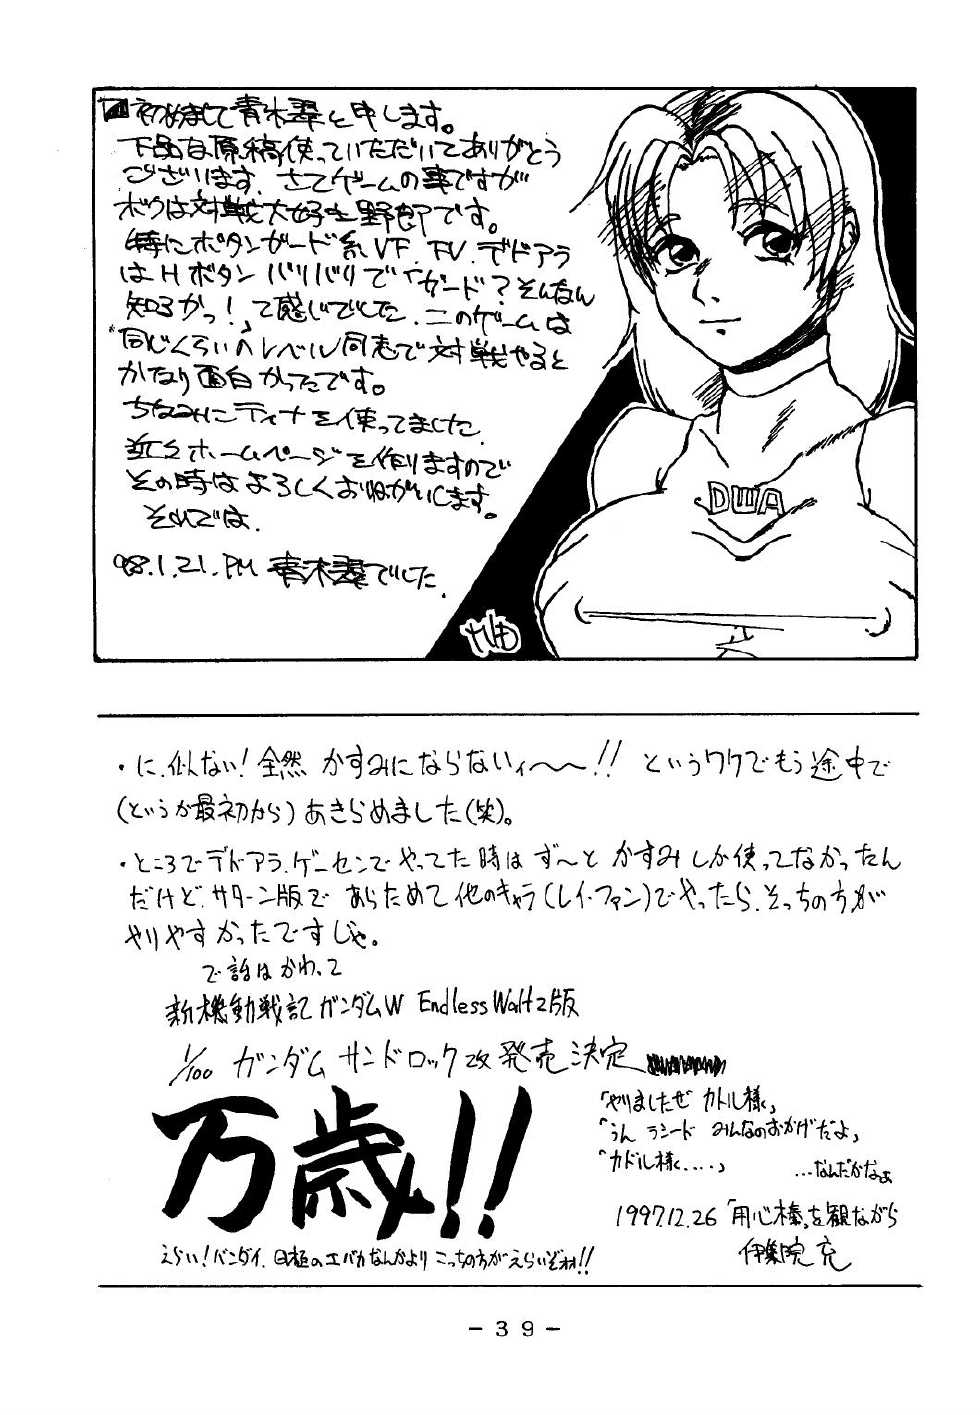 初めまして青木翠と申します。
下品な原稿使っていただいてありがとう
ございます。さてゲームの事ですが
ボクは対戦大好き野郎です。
特にボタンガード系VF.FV.デドアラ
はHボタンバリバリで「ガード?そんなん
知るかっ!」て感じでした.このゲームは
同じくらいのレベル同志で対戦やると
かなり面白かったです。
ちなみにティナを使ってました.
近々ホームページを作りますので
その時はよろしくおねがいします。
それでは.
'98.1.21.PM 青木翠でした.
DWA
・に、似ない!全然かすみにならないィ〜〜!!というワケでもう途中で
(というか最初から)あきらめました(笑)。
・ところでデドアラ、ゲーセンでやってた時はず〜とかすみしか使ってなかったん
だけど、サターン版であらためて他のキャラ(レイ・ファン)でやったら、そっちの方が
やりやすかったですじゃ。
で話はかわって
新機動戦記ガンダムW Endless Waltz版
1/100 ガンダムサンドロック改発売決定
万歳!!
「やりましたぜ カトル様」
「うん ラシード みんなのおかげだよ」
「カトル様‥‥」 …なんだかなぁ
1997.12.26「用心棒」を観ながら
伊集院 充
えらい!バンダイ.目極のエバかなんかよりこっちの方がえらいぞォ!!
-39-